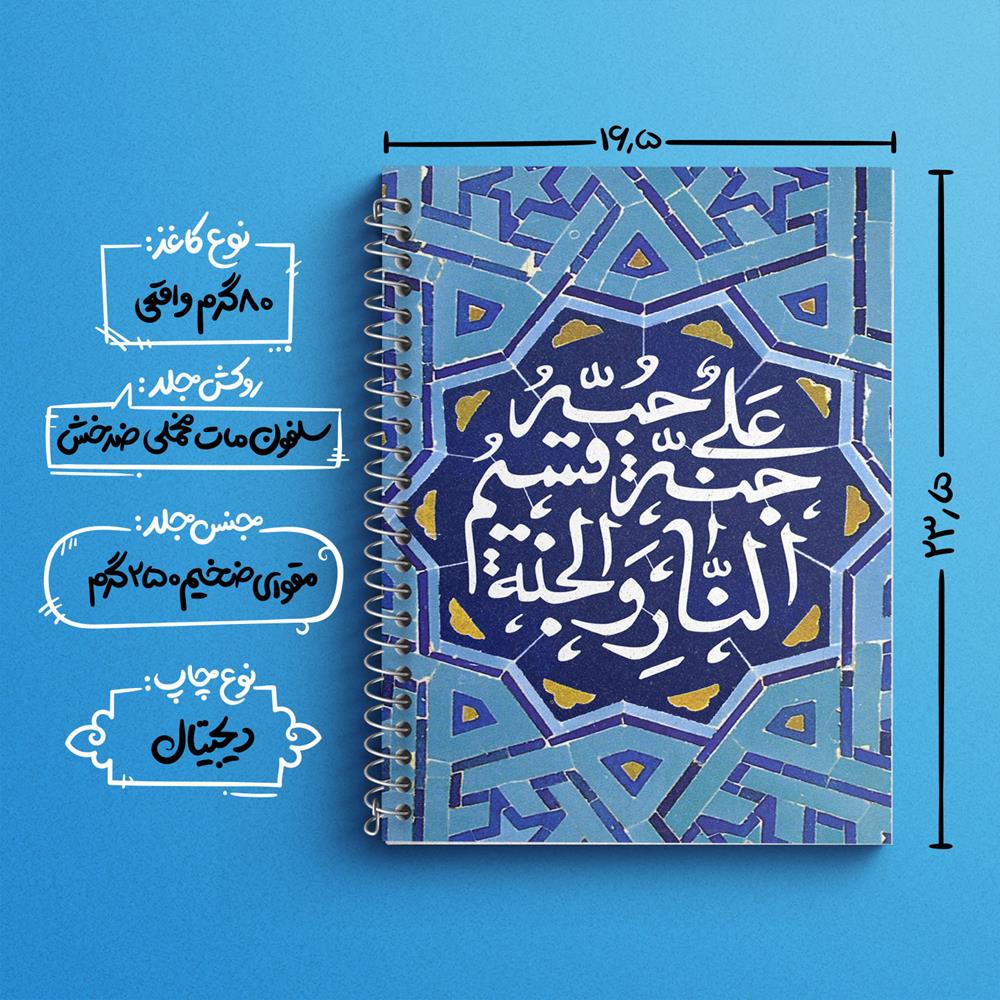 ۱۶,۵
۲۳,۵
نوع کاغذ:
۸۰گرم واقعی
روکش جلد:
سلفون مات مخملی ضدخش
جنس جلد:
مقوای ضخیم ۲۵۰ گرم
نوع چاپ:
دیجیتال
عَلی حُبُّهُ
جنة قسیم
النّار وَالجنة